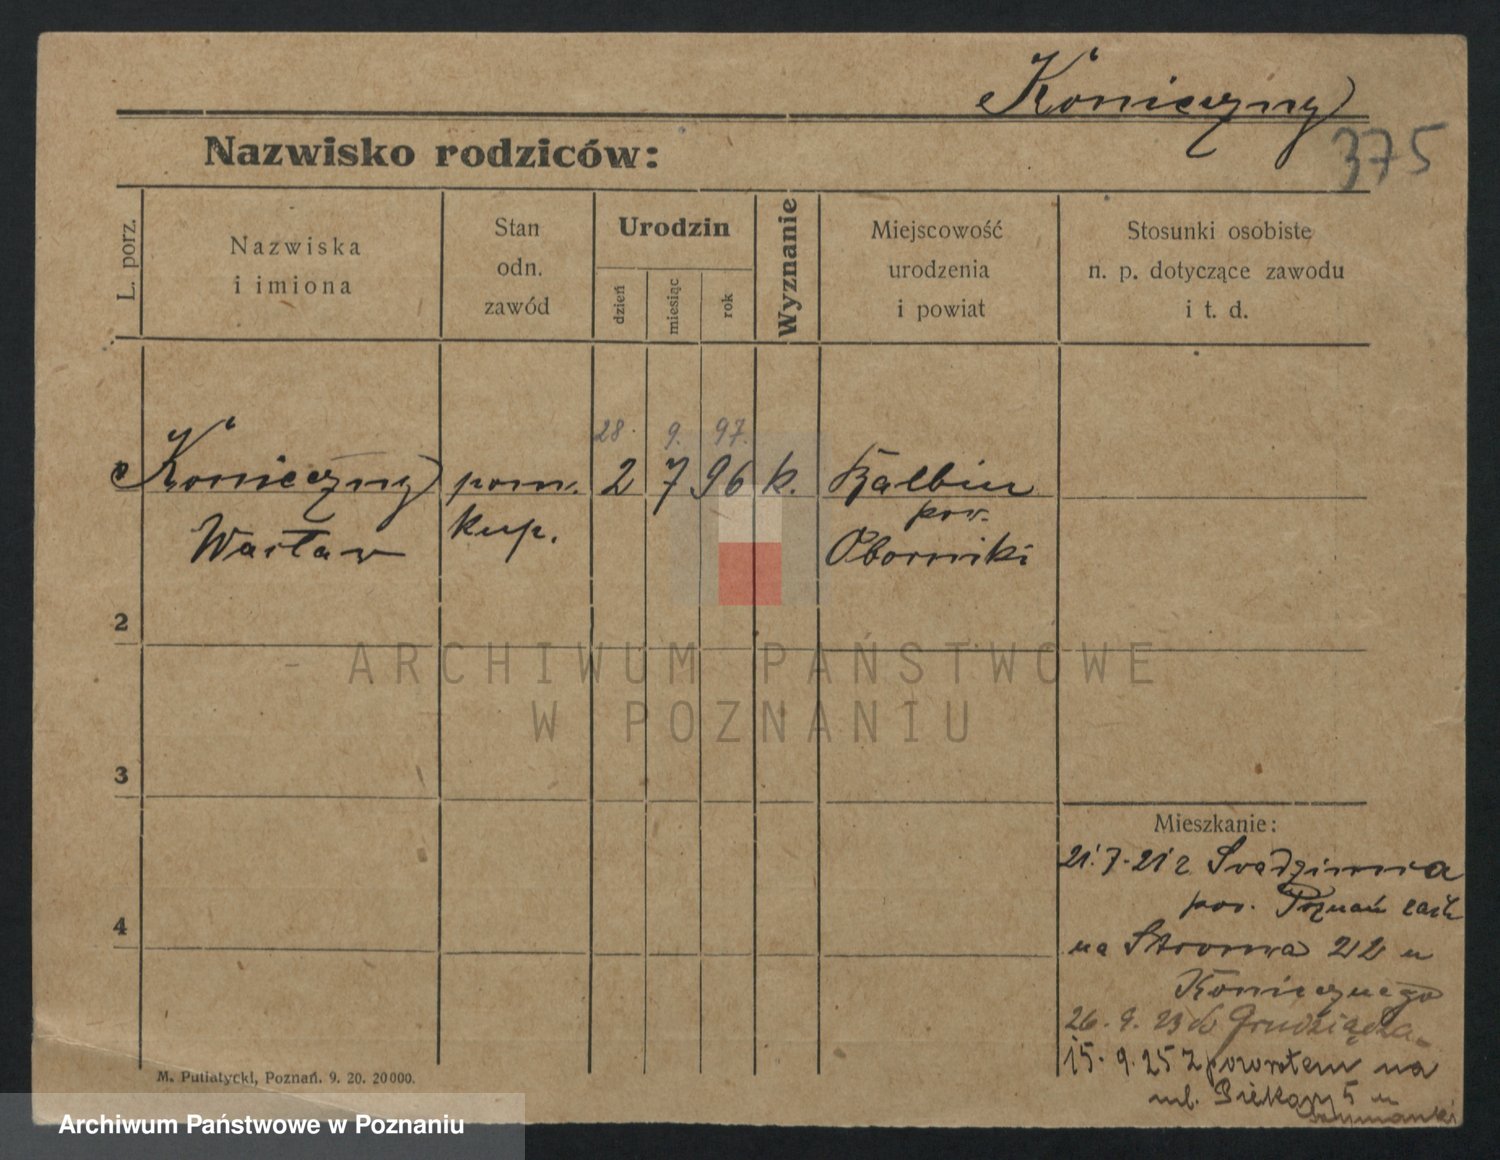 Konieczny
375
Nazwisko rodziców:
L. porz.
Nazwiska
i imiona
Stan
odn.
zawód
Urodzin
dzień
miesiąc
rok
Wyznanie
Miejscowość
urodzenia
i powiat
Stosunki osobiste
n. p. dotyczące zawodu
i t. d.
28. 9. 97.
Konieczny pom. 2 7 96 k.
Wacław kup. pow.
Oborniki
2
3
4
ARCHIWUM PAŃSTWOWE
W POZNANIU
Mieszkanie:
21.7.21 z
pow. Poznań zach
na Stroma 22 u
Koniecznego
26. 9. 23 do Grudziądza
15. 9. 25 z powrotem na
ul. Piekary 5 u
M. Putiatycki, Poznań. 9. 20. 20000.
Archiwum Państwowe w Poznaniu